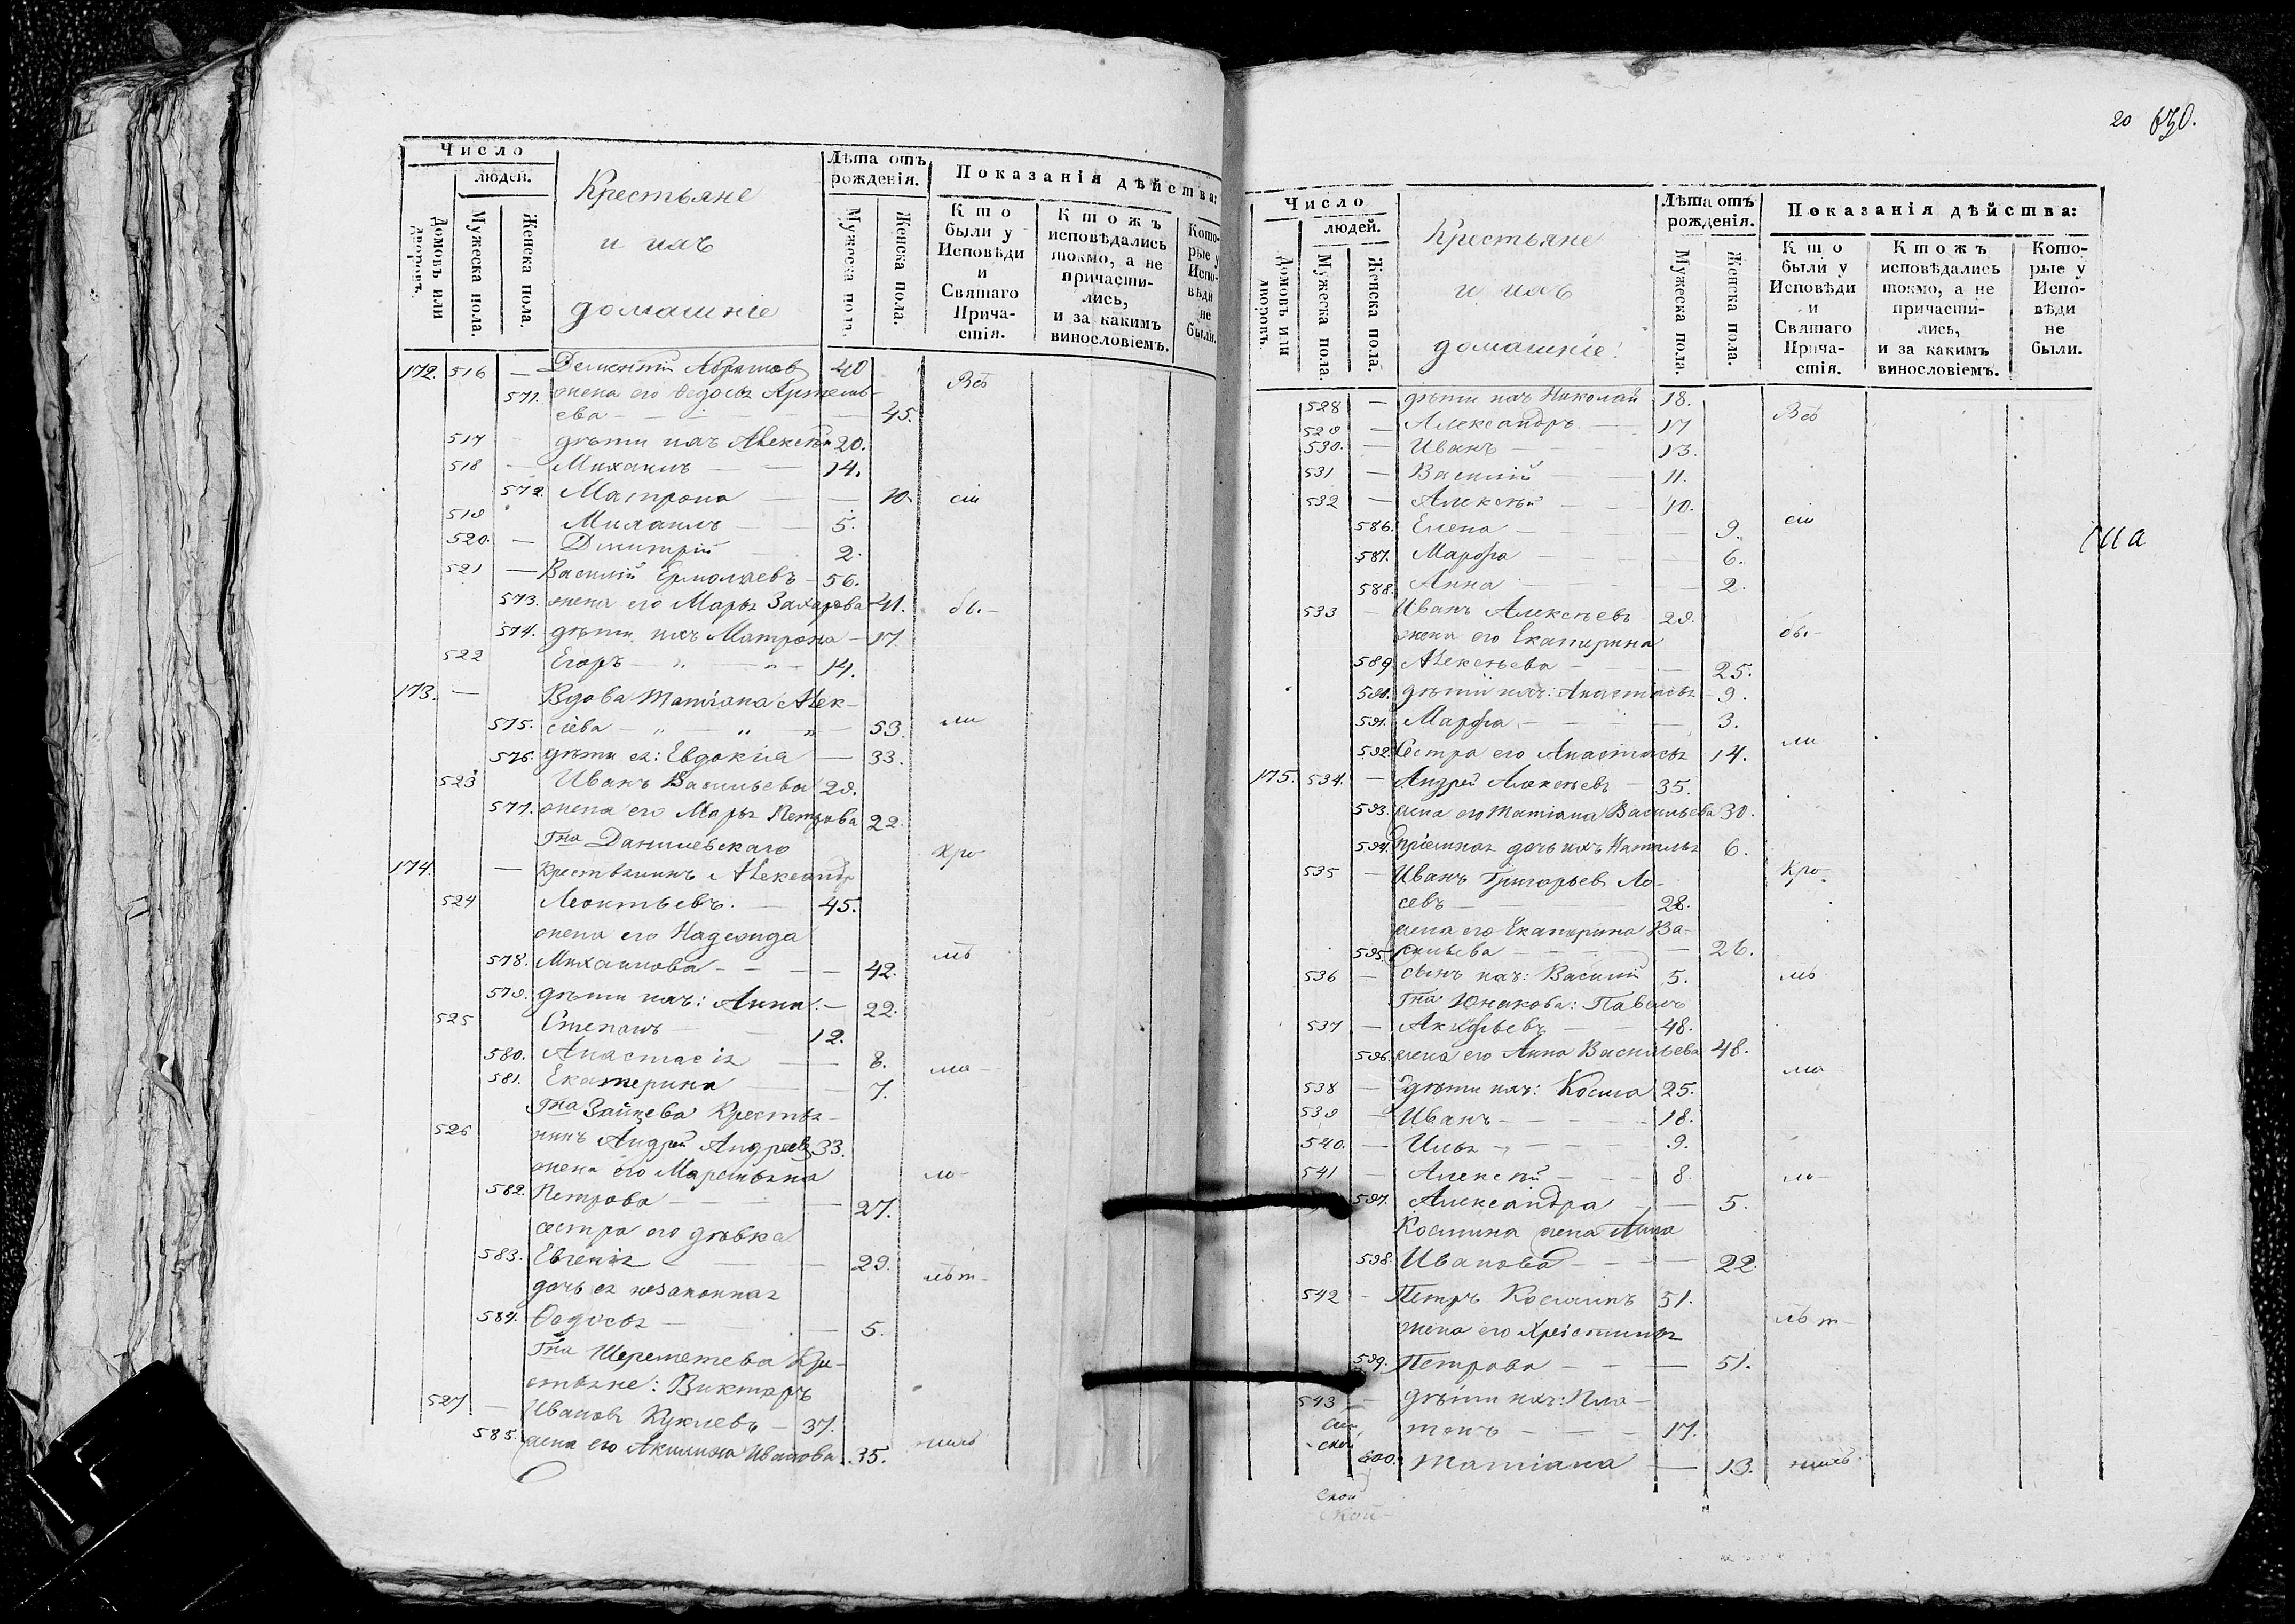 Число
людей.
Домовъ или дворовъ.
Мужеска пола.
Женска пола.
Крестьяне
и ихъ
домашніе
Лѣта отъ
рожденія.
Мужеска пола.
Женска пола.
Показанія дѣйства:
Кто
были у
Исповѣди
и
Святаго
Прича-
стія.
Ктожъ
исповѣдались
токмо, а не
причасти-
лись,
и за какимъ
винословіемъ.
Кото-
рые у
Испо-
вѣди
не
были.
172. 516 — Дементій Абрамовъ 40 Всѣ
571. жена его Ѳедосья Артемь-
ева — — — 45.
517 дѣти ихъ Алексѣй 20.
518 — Михаилъ — — 14.
572. Матрона — — 10. сіи
519 Михаилъ — — 5.
520. — Дмитрій 2.
521 — Василій Ермолаевъ — 56.
573. жена его Марья Захарова 41. бы-
574. дѣти ихъ Матрона — 17.
522 Егоръ — „ — „ — 14.
173. — Вдова Татіана Алек-
575. сіева — „ — „ — „ — 53. ли
576. дѣти ея: Евдокія — 33.
523 Иванъ Васильевъ 29.
577. жена его Марья Петрова 22.
Гна Данилевскаго Хри-
174. — Крестьянинъ Александр
524 Леонтьевъ. — 45.
жена его Надежда
578. Михаилова — — — 42. мѣ
579. дѣти ихъ: Анна — 22.
525 Степанъ — — 12.
580. Анастасія — 8.
581. Екатерина — — 7. ма-
Гна Зайцева Крестья-
526 нинъ Андрей Андреевъ 33.
жена его Мартьяна ло-
582. Петрова — — — 27.
сестра его дѣвка
583. Евгенія — — 29.
дочь ея незаконная лѣт-
584. Ѳедосья — — 5.
Гна Шереметева Кре-
стьяне: Викторъ
527 — Ивановъ Куклевъ — 37.
585. жена его Акилина Иванова 35. нимъ
20 630.
Число
людей.
Домовъ или дворовъ.
Мужеска пола.
Женска пола.
Крестьяне
и ихъ
домашніе:
Лѣта отъ
рожденія.
Мужеска пола.
Женска пола.
Показанія дѣйства:
Кто
были у
Исповѣди
и
Святаго
Прича-
стія.
Ктожъ
исповѣдались
токмо, а не
причасти-
лись,
и за какимъ
винословіемъ.
Кото-
рые у
Испо-
вѣди
не
были.
528 — дѣти ихъ Николай 18. Всѣ
529 — Александръ — 17
530. — Иванъ — — 13.
531 — Василій — 11.
532 — Алексѣй — — 10. сіи
586. Елена — — — 9.
587. Марфа — — — 6.
588. Анна — — — 2.
533 — Иванъ Алексѣевъ 29.
жена его Екатерина бы-
589. Алексѣева — — — 25.
590. дѣти ихъ: Анастасья — 9.
591. Марфа — — — 3.
592. Сестра его Анастасья 14. ли
175. 534. — Андрей Алексѣевъ — 35.
593. жена его Татіана Васильева 30.
594. пріемная дочь ихъ Наталья 6.
535 — Иванъ Григорьевъ Ло- Хри-
севъ — — 28.
жена его Екатерина Ва-
595. сильева — — — 26.
536 — сынъ ихъ: Василій 5. мѣ
Гна Юнакова: Павелъ
537 — Акифьевъ — — 48.
596. жена его Анна Васильева 48.
538 — дѣти ихъ: Косма 25. ма
539 — Иванъ — — — 18.
540. — Илья — — — 9.
541 — Алексѣй — — 8 ло-
597. Александра — — 5.
Космина жена Анна
598. Иванова — — — 22.
542 — Петръ Косминъ 51. лѣт-
жена его Христина
599. Петрова — — — 51.
543 — дѣти ихъ: Пла-
тонъ — — — 17.
600. Татіана — 13. нимъ
ской
ской
ской-